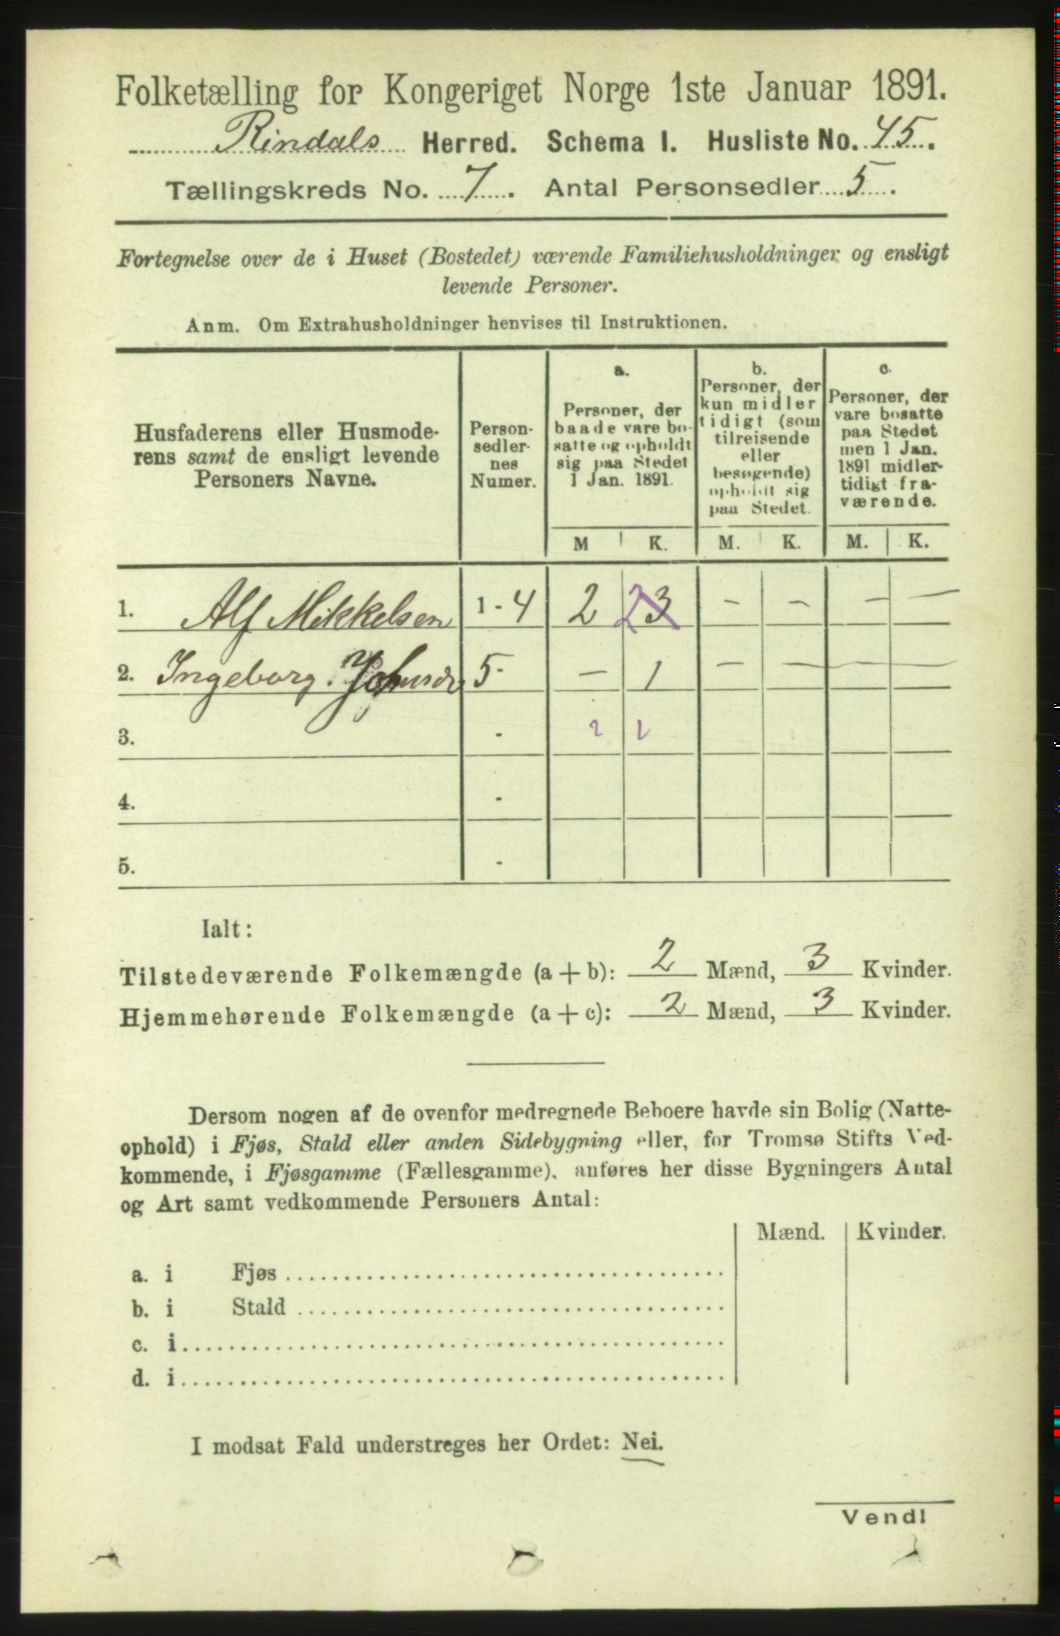 Folketælling for Kongeriget Norge 1ste Januar 1891.
Rindals Herred. Schema I. Husliste No. 45.
Tællingskreds No. 7. Antal Personsedler 5.
Fortegnelse over de i Huset (Bostedet) værende Familiehusholdninger og ensligt
levende Personer.
Anm. Om Extrahusholdninger henvises til Instruktionen.
Husfaderens eller Husmode-
rens samt de ensligt levende
Personers Navne.
Person-
sedler-
nes
Numer.
a.
Personer, der
baade vare bo-
satte og opholdt
sig paa Stedet
1 Jan. 1891.
M K.
b.
Personer, der
kun midler
tidigt (som
tilreisende
eller
besøgende)
opholdt sig
paa Stedet.
M. K.
c.
Personer, der
vare bosatte
paa Stedet
men 1 Jan.
1891 midler-
tidigt fra-
værende.
M. K.
1. Alf Mikkelsen 1 - 4 2 2 3 - - - -
2. Ingeborg 5 - - 1 - - - -
3. - 2 2
4. -
5. -
Ialt:
Tilstedeværende Folkemængde (a + b): 2 Mænd, 3 Kvinder.
Hjemmehørende Folkemængde (a + c): 2 Mænd, 3 Kvinder.
Dersom nogen af de ovenfor medregnede Beboere havde sin Bolig (Natte-
ophold) i Fjøs, Stald eller anden Sidebygning eller, for Tromsø Stifts Ved-
kommende, i Fjøsgamme (Fællesgamme), anføres her disse Bygningers Antal
og Art samt vedkommende Personers Antal:
Mænd. Kvinder.
a. i Fjøs
b. i Stald
c. i
d. i
I modsat Fald understreges her Ordet: Nei.
Vend!